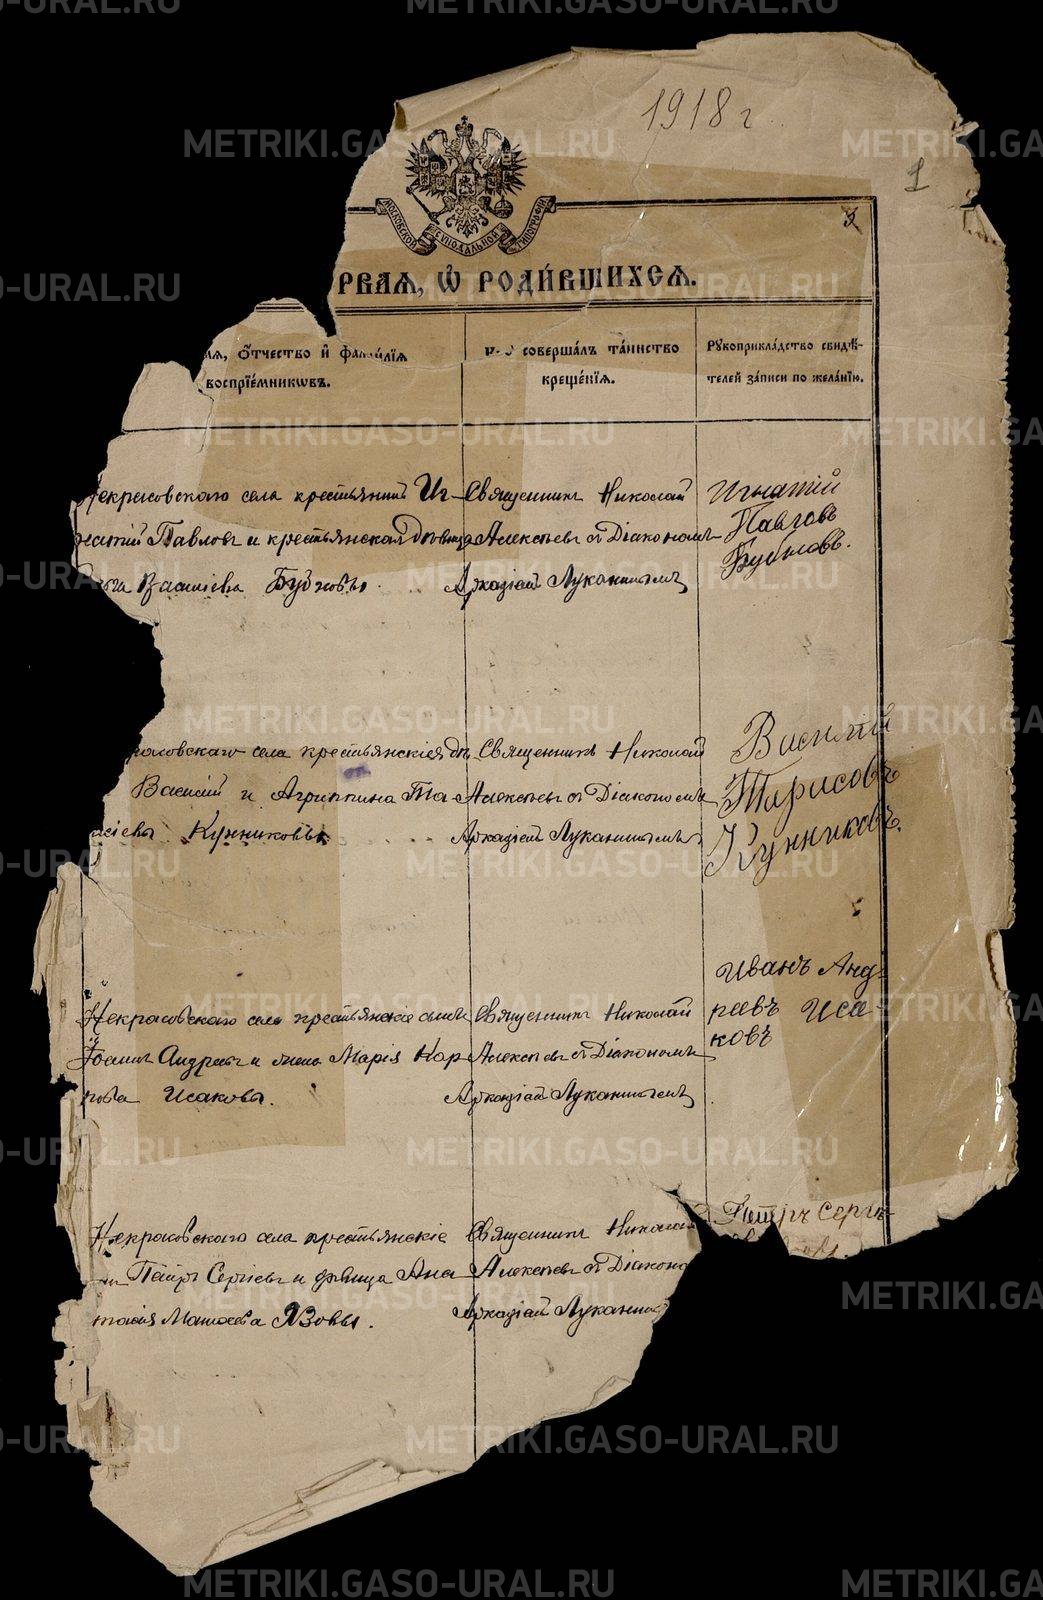 1918 г
1
2
МОСКОВСКОЙ СУНОДАЛЬНОЙ ТИПОГРАФІИ
РВАЯ, Ѿ РОДИ́ВШИХСЯ.
мя, Ѻ҆тчество и҆ фамилїя
воспрїе́мникѡвъ.
совершалъ та́инство
креще́нїя.
Рꙋкоприкла́дство свидѣ́-
телей за́писи по жела́нїю.
Некрасовскаго села крестьянинъ Иг-
натій Павловъ и крестьянская дѣвица
Васиіева Бубновы.
Священникъ Николай
Алексѣевъ съ Діакономъ
Аркадіемъ Луканинымъ
Игнатій
Павловъ
Бубновъ.
расовскаго села крестьянскія дѣ
Василій и Агриппина Та-
расіевы Кунниковы
Священникъ Николай
Алексѣевъ съ Діакономъ
Аркадіемъ Луканинымъ
Василій
Тарасовъ
Кунниковъ.
Некрасовскаго села крестьянскіе сынъ
Іоаннъ Андреевъ и жена Марія Кар-
пова Исаковы.
Священникъ Николай
Алексѣевъ съ Діакономъ
Аркадіемъ Луканинымъ
Иванъ Анд-
реевъ Иса-
ковъ
Некрасовскаго села крестьянскіе
Петръ Сергіевъ и дѣвица Ана-
тасія Матѳеева Язовы.
Священникъ Николай
Алексѣевъ съ Діаконо
Аркадіемъ Луканин
Петръ Сергѣ-
METRIKI.GASO-URAL.RU